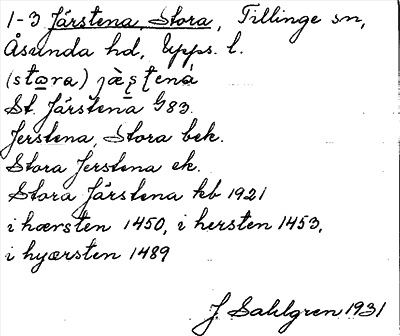 1-3 Järstena, Stora, Tillinge sn,
Åsunda hd, Upps. l.
(stora)
St. Järstena G83.
Jerstena, Stora bek.
Stora Jerstena ek.
Stora Järstena kb 1921
i hærsten 1450, i hersten 1453,
i hyærsten 1489
J. Sahlgren 1931